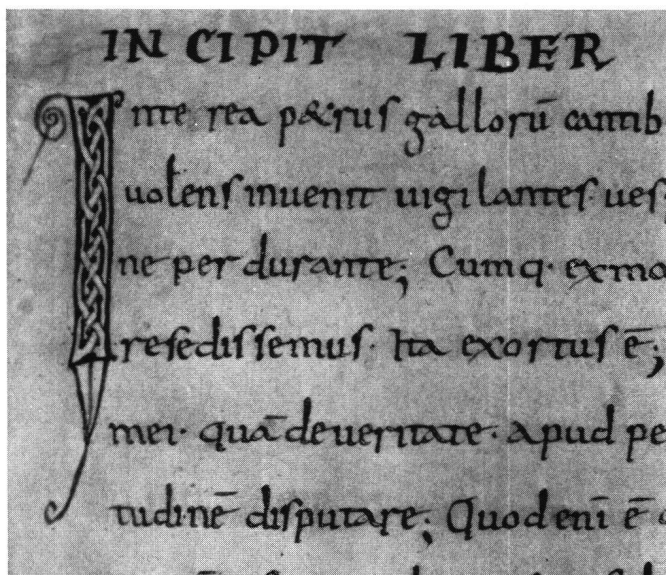 IN CIPIT LIBER
Inte rea p&rus gallorū cantib
uolens inuenit uigilantes· ues·
ne per durante; Cumq· exmo
resedissemus· Ita exortus ē;
mei· quā deueritate· apud pe
tudinē disputare; Quod enī ē